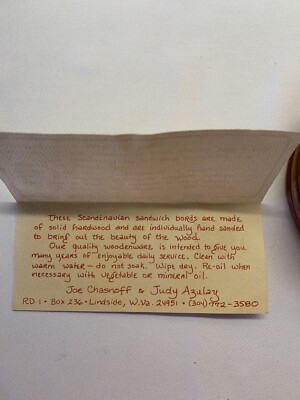 These Scandinavian sandwich bords are made
of solid hardwood and are individually hand sanded
to bring out the beauty of the wood.
Our quality woodenware is intended to give you
many years of enjoyable daily service. Clean with
warm water — do not soak. Wipe dry. Re-oil when
necessary with vegetable or mineral oil.
Joe Chasnoff & Judy Azulay
RD 1 • Box 236 • Lindside, W.Va. 24951 • (304) 772-3580